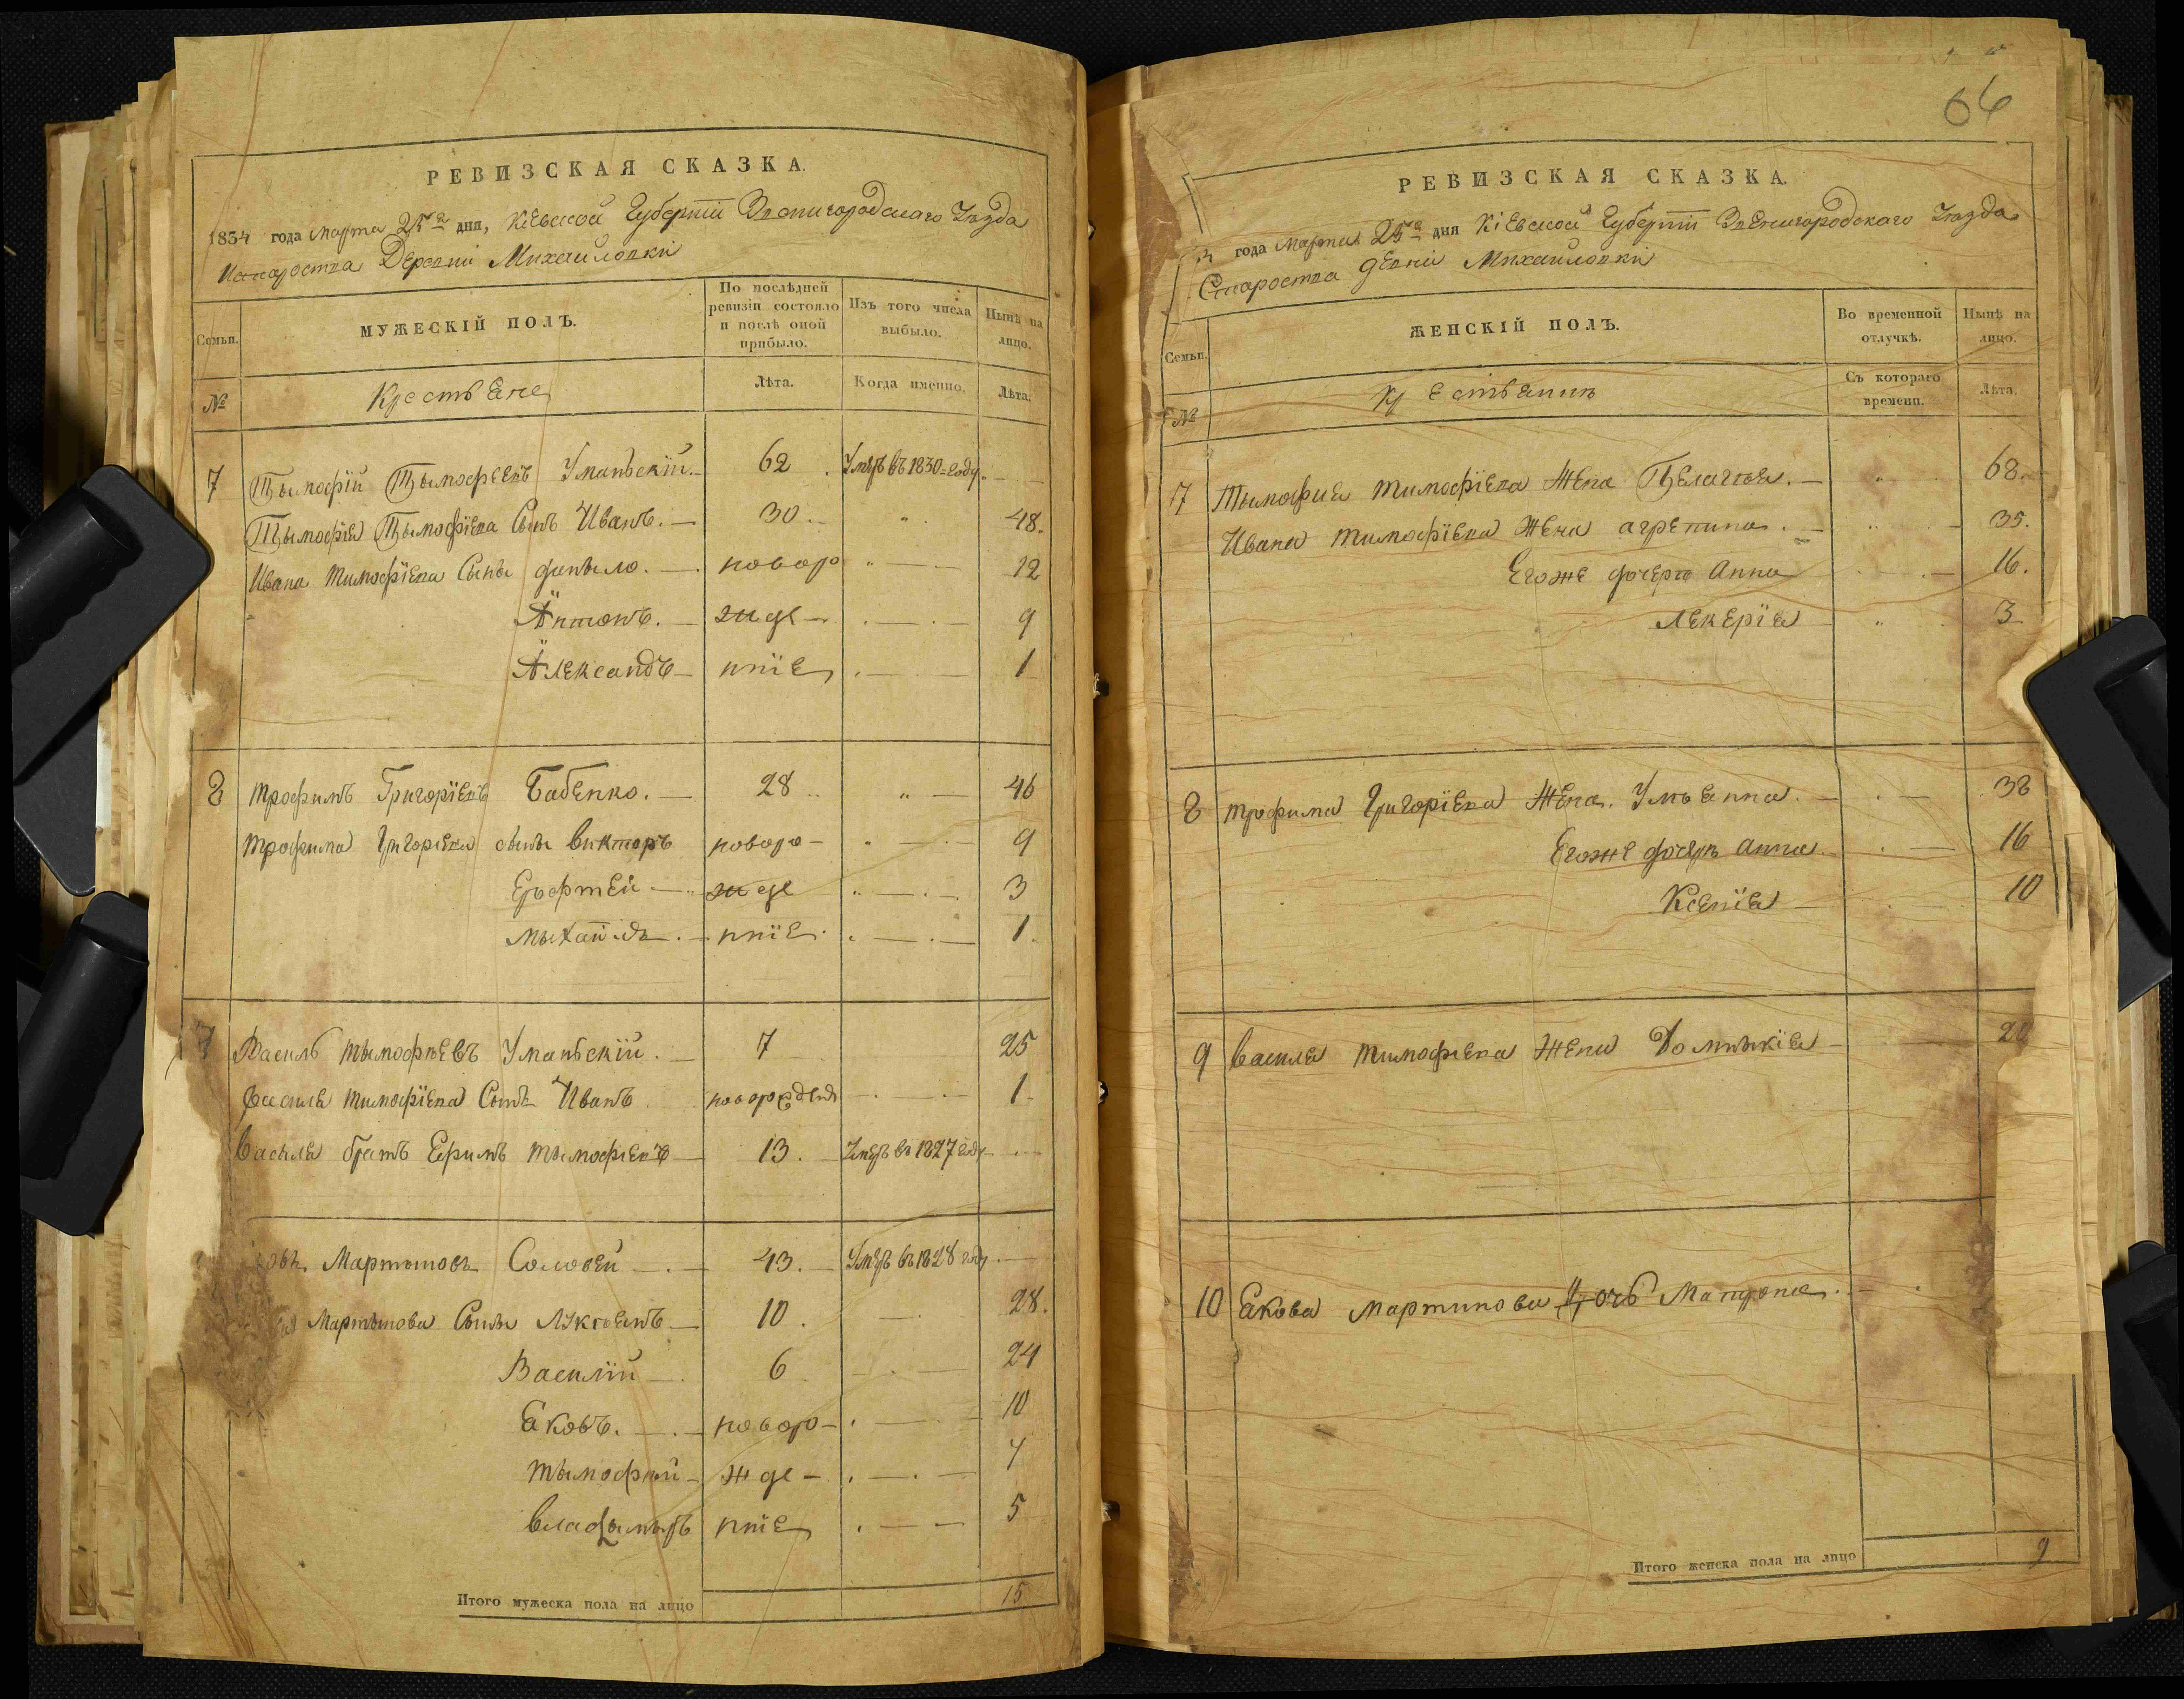 РЕВИЗСКАЯ СКАЗКА.
1834 года марта 25го дня, Кіевской Губерніи Звенигородскаго Уѣзда
Деревни Михайловки
Семьи.
МУЖЕСКІЙ ПОЛЪ.
По послѣдней ревизіи состояло и послѣ оной прибыло.
Изъ того числа выбыло.
Нынѣ на лицо.
№
Лѣта.
Когда именно.
Лѣта.
7 Тымофій Тымофеевъ Уманьскій. 62 Умеръ въ 1830 году
Тымофія Тымофіева Сынъ Иванъ. 30. 48.
Ивана Тимофіева Сыны Даныло. новоро 12
Антонъ. жде 9
Александъ нніе 1
8 Трофимъ Григоріевъ Бабенко. 28 46
Трофима Григоріева сыны Викторъ новоро 9
жде 3
нніе 1.
Василь Тымофѣевъ Уманьскій. 7 25
Василя Тимофіева Сынъ Иванъ 1
Василя братъ Тымофіевъ 13. Умеръ въ 1827 году
Мартыновъ Соловей 43. Умеръ въ 1828 году
Мартынова Сыны 10. 28.
Василій 6 24
Яковъ. новоро 10
Тымофій жде 7
Владымыръ нніе 5
Итого мужеска пола на лицо 15
66
РЕВИЗСКАЯ СКАЗКА.
года марта 25го дня Кіевской Губерніи Звенигородскаго Уѣзда
Староства Михайловки
Семьи.
ЖЕНСКІЙ ПОЛЪ.
Во временной отлучкѣ.
Нынѣ на лицо.
№
Съ котораго времени.
Лѣта.
7 Тымофия Тимофіева Жена Пелагія. 68.
Ивана Тимофіева Жена Агрепина. 35.
Егоже дочери Анна 16.
Лекерія 3
8 Трофима Григоріева Жена. Ульянна. 38
Егоже дочери Анна 16
Ксенія 10
9 Василя Тимофіева Жена
10 Якова Мартинова Дочь
Итого женска пола на лицо 9